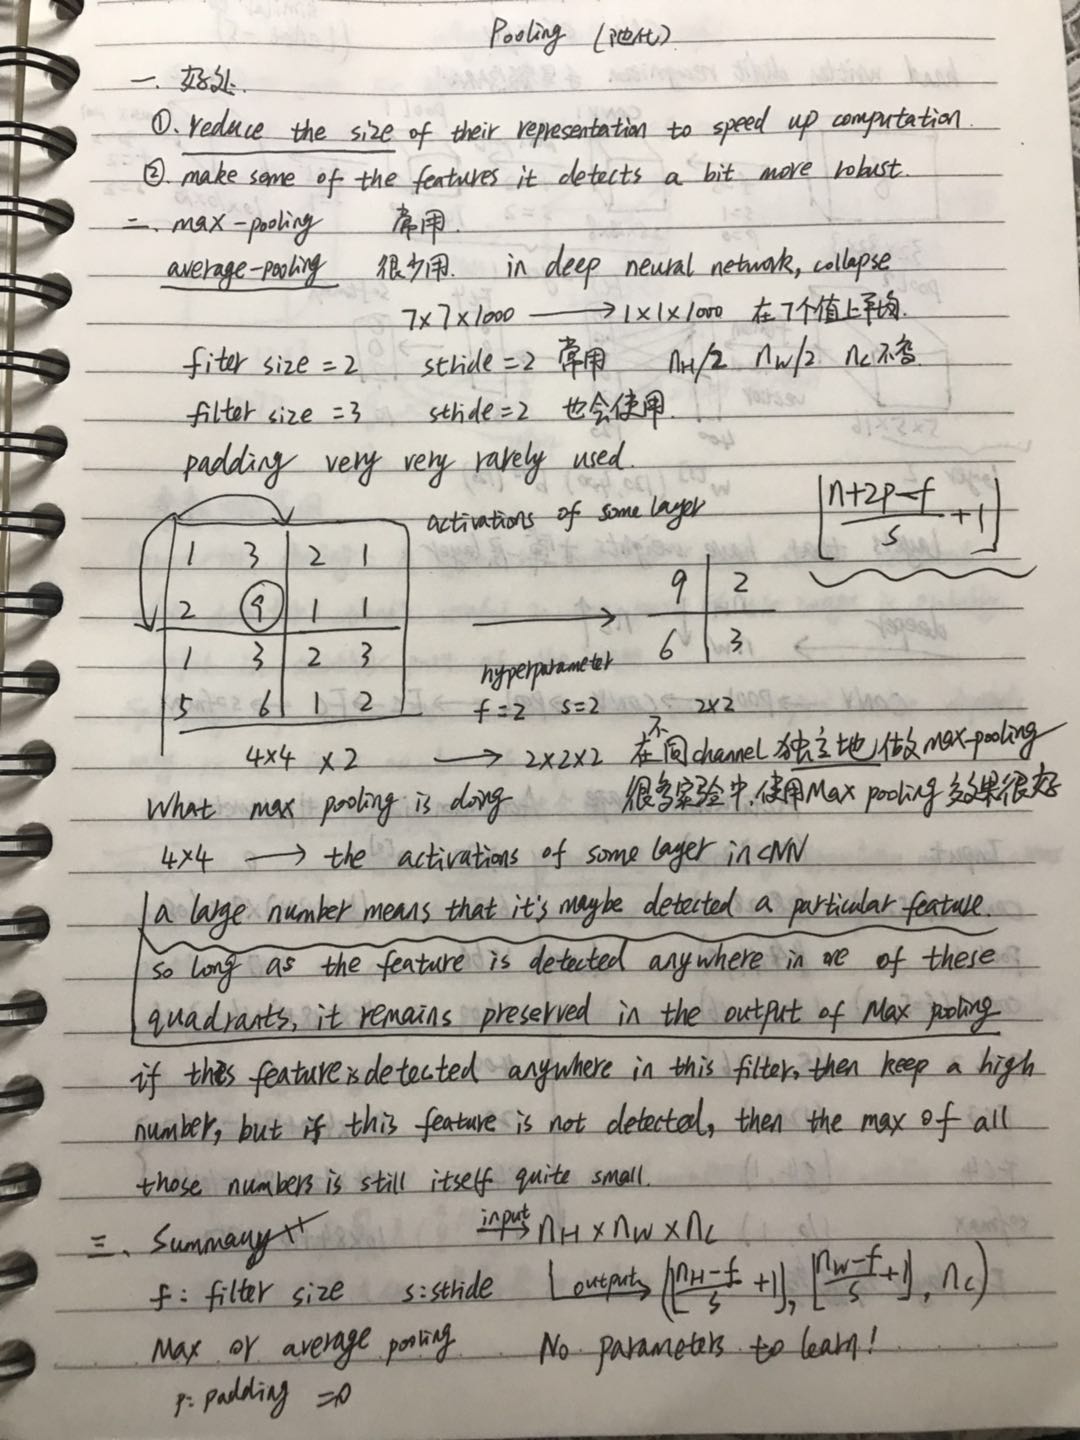 Pooling (池化)
一. 好处.
①. reduce the size of their representation to speed up computation.
②. make some of the features it detects a bit more robust.
二. max-pooling 常用.
average-pooling 很少用. in deep neural network, collapse
7×7×1000 → 1×1×1000 在7个值上平均.
fiter size = 2 stride = 2 常用 nH/2 nW/2 nC不变
filter size = 3 stride = 2 也会使用.
padding very very rarely used.
activations of some layer ⌊(n+2p-f)/s + 1⌋
1 3 2 1
2 9 1 1
1 3 2 3
5 6 1 2
→
9 2
6 3
hyperparameter
f=2 s=2 2×2
4×4 ×2 → 2×2×2 在不同channel独立地做max-pooling
What max pooling is doing 很多实验中,使用Max pooling 效果很好
4×4 → the activations of some layer in CNN
a large number means that it's maybe detected a particular feature.
so long as the feature is detected anywhere in one of these
quadrants, it remains preserved in the output of Max pooling
if this feature is detected anywhere in this filter, then keep a high
number, but if this feature is not detected, then the max of all
those numbers is still itself quite small.
三、Summary input → nH × nW × nC
f: filter size s: stride output → (⌊(nH-f)/s + 1⌋, ⌊(nW-f)/s + 1⌋, nC)
Max or average pooling No parameters to learn!
p: padding =0